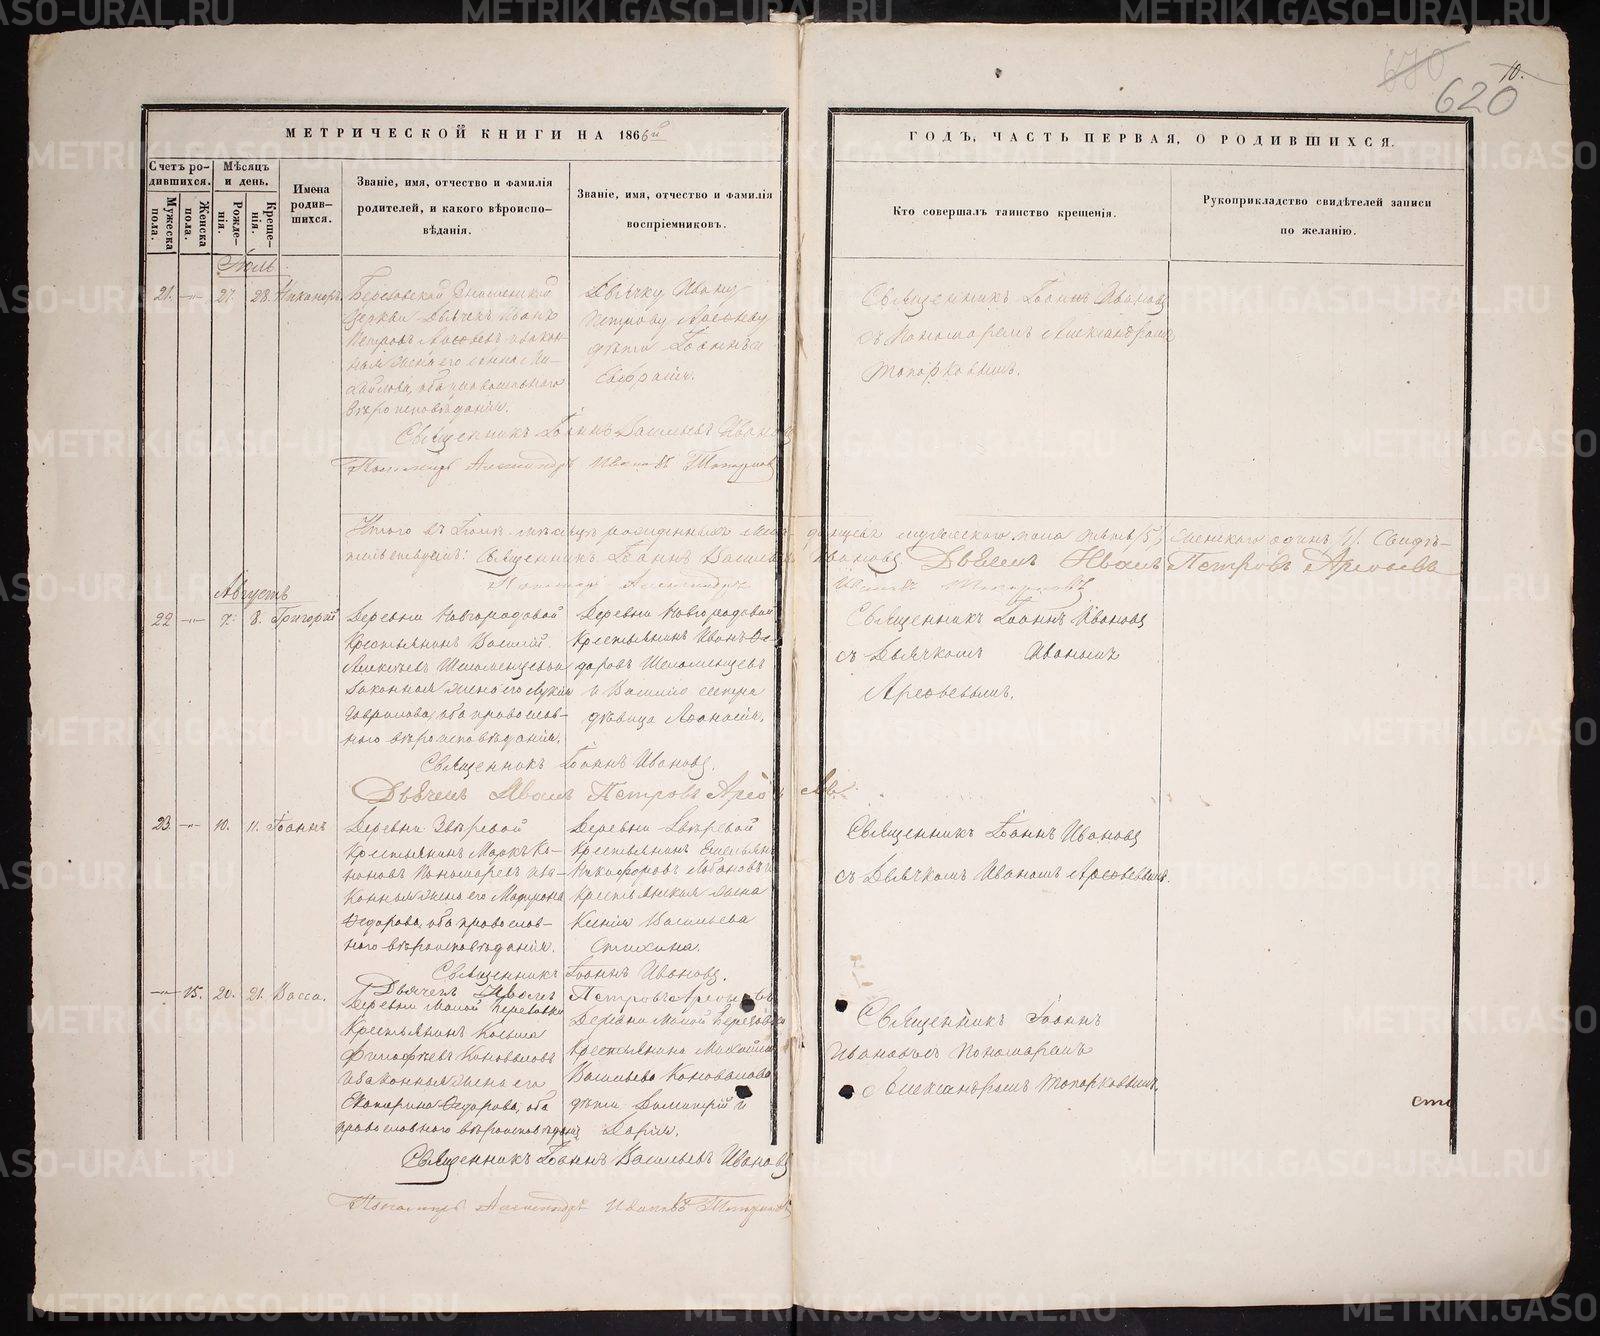 620
10.
МЕТРИЧЕСКОЙ КНИГИ НА 1866й
ГОДЪ, ЧАСТЬ ПЕРВАЯ, О РОДИВШИХСЯ.
Счетъ ро-
дившихся.
Мужеска
пола.
Женска
пола.
Мѣсяцъ
и день.
Рожде-
нія.
Креще-
нія.
Имена
родив-
шихся.
Званіе, имя, отчество и фамилія
родителей, и какого вѣроиспо-
вѣданія.
Званіе, имя, отчество и фамилія
воспріемниковъ.
Кто совершалъ таинство крещенія.
Рукоприкладство свидѣтелей записи
по желанію.
Іюль
21. 27. 28. Никаноръ
церкви Дьячекъ Иванъ
Петровъ
ная жена его Анна Ми-
хайлова, оба православнаго
вѣроисповѣданія.
Дьячку Ивану
Петрову
дѣти Іоаннъ и
Священникъ Іоаннъ Ивановъ
съ Пономаремъ Александромъ
Топорковымъ.
Священникъ Іоаннъ Васильевъ Ивановъ
Пономарь Александръ Ивановъ Топорковъ
Итого въ Іюлѣ мѣсяцѣ рожденныхъ мла- денцевъ мужескаго пола пять /5/, женскаго одинъ /1/. Свидѣ-
тельствуемъ: Священникъ Іоаннъ Васильевъ Ивановъ Дьячекъ Иванъ Петровъ Арефьевъ
Пономарь Александръ Ивановъ Топорковъ
Августъ
22 7. 8. Григорій
Деревни Новгородовой
Крестьянинъ Василій
Алексѣевъ
законная жена его
Гаврилова, оба православ-
наго вѣроисповѣданія.
Деревни Новгородовой
Крестьянинъ Иванъ Ѳе-
доровъ
и Василія сестра
дѣвица Аѳанасія.
Священникъ Іоаннъ Ивановъ
съ Дьячкомъ Иваномъ
Арефьевымъ.
Священникъ Іоаннъ Ивановъ.
Дьячекъ Иванъ Петровъ Арефьевъ
23. 10. 11. Іоаннъ
Деревни Звѣревой
Крестьянинъ Маркъ Ко-
ноновъ Пономаревъ и за-
конная жена его Матрона
Ѳедорова, оба православ-
наго вѣроисповѣданія.
Деревни Звѣревой
Крестьянинъ Емельянъ
Никифоровъ Лобановъ и
Крестьянская жена
Ксенія Васильева
Священникъ Іоаннъ Ивановъ
съ Дьячкомъ Иваномъ Арефьевымъ.
Священникъ Іоаннъ Ивановъ.
Дьячекъ Иванъ Петровъ Арефьевъ
15. 20. 21. Васса.
Деревни Малой Березовки
Крестьянинъ Косьма
Коноваловъ
и законная жена его
Екатерина Ѳедорова, оба
православнаго вѣроисповѣданія
Деревни Малой Березовки
Крестьянина Михаила
Васильева Коновалова
дѣти Димитрій и
Дарія.
Священникъ Іоаннъ
Ивановъ съ Пономаремъ
Александромъ Топорковымъ.
Священникъ Іоаннъ Васильевъ Ивановъ
Пономарь Александръ Ивановъ Топорковъ
METRIKI.GASO-URAL.RU